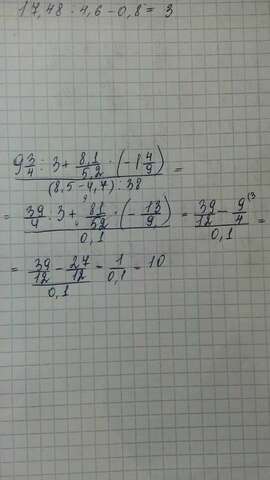 17,48 : 4,6 - 0,8 = 3
(9 3/4 : 3 + 8,1/5,2 · (-1 4/9)) / ((8,5 - 4,7) : 38) =
= (39/4 : 3 + 81/52 · (-13/9)) / 0,1 = (39/12 - 9/4 (3) / 0,1 =
= (39/12 - 27/12) / 0,1 = 1/0,1 = 10